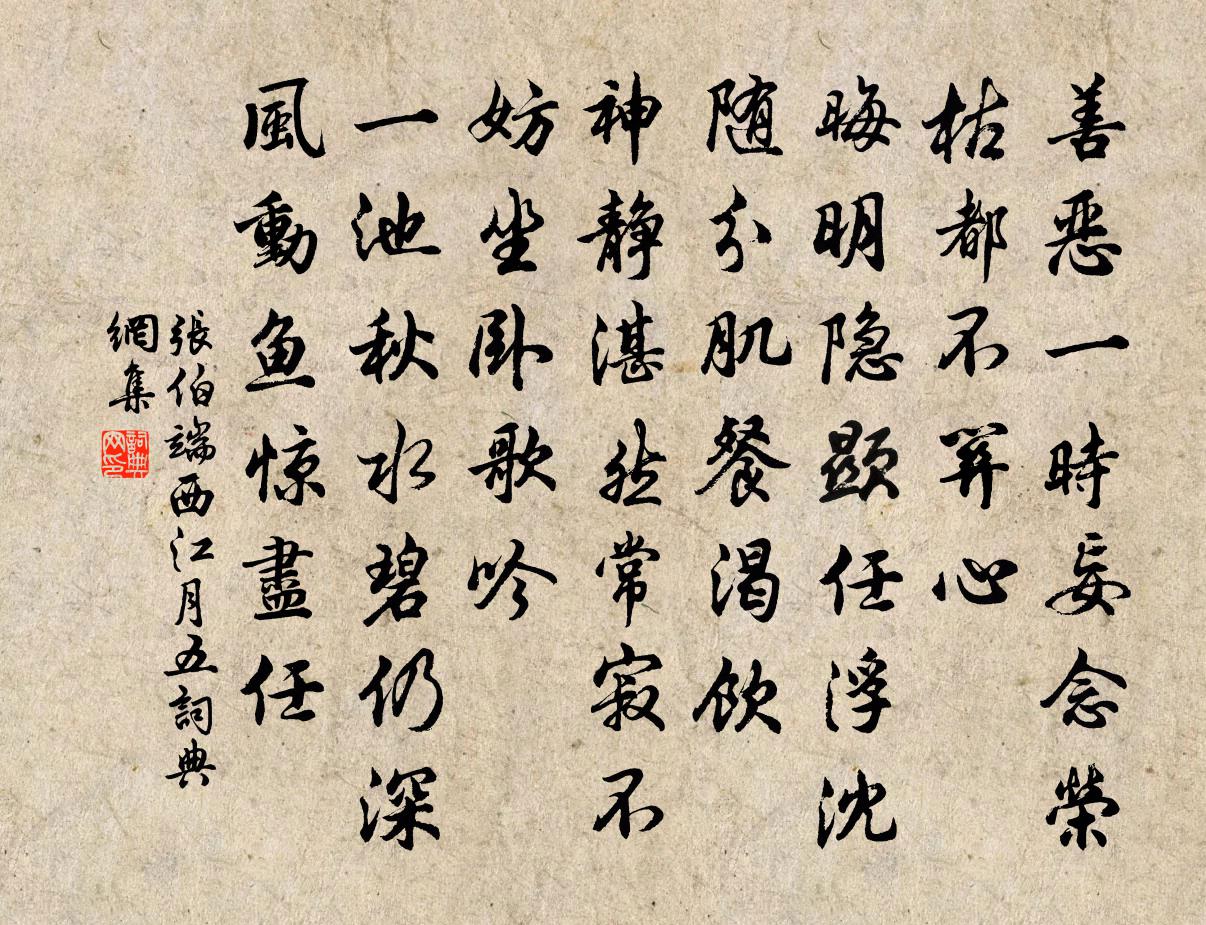 善惡一時妄念榮
枯都不関心
晦明隐顯任浮沈
随分肌餐渴飲
神静湛然常寂不
妨坐卧歌吟
一池秋水碧仍深
風動鱼惊盡任
張伯端西江月五詞典
網集
詞典
网印